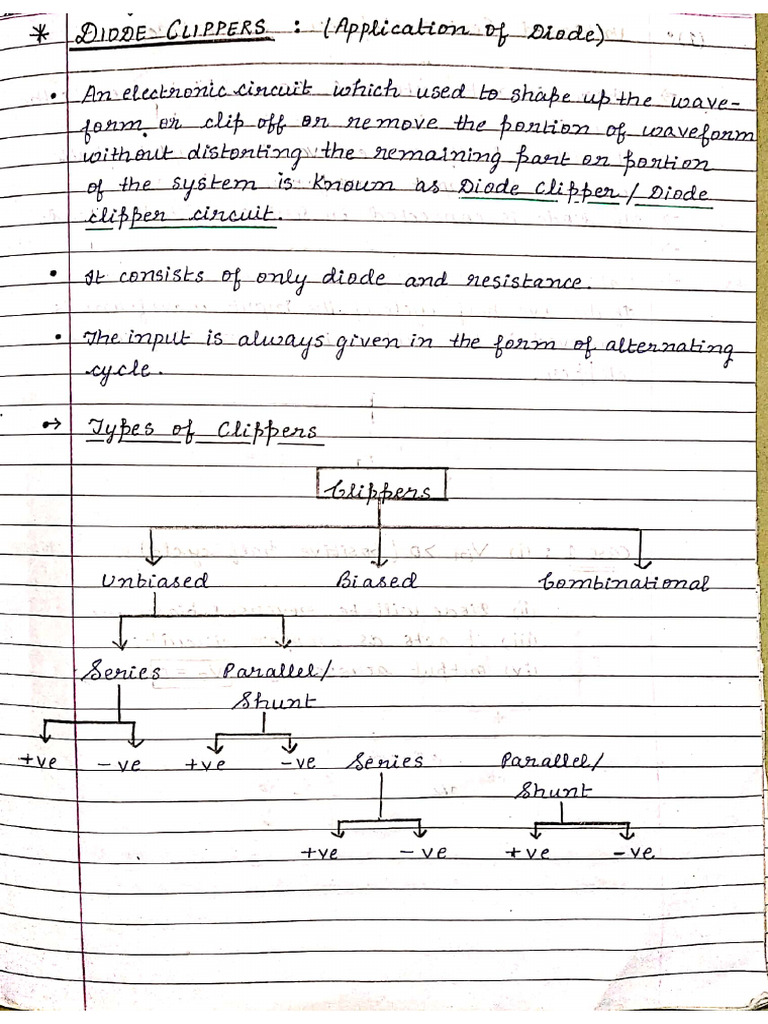 * DIODE CLIPPERS : (Application of Diode)
• An electronic circuit which used to shape up the wave-
form or clip off or remove the portion of waveform
without distorting the remaining part or portion
of the system is known as Diode Clipper / Diode
clipper circuit.
• It consists of only diode and resistance.
• The input is always given in the form of alternating
cycle.
↦ Types of Clippers
Clippers
Unbiased Biased Combinational
Series Parallel/
Shunt
+ve -ve +ve -ve Series Parallel/
Shunt
+ve -ve +ve -ve